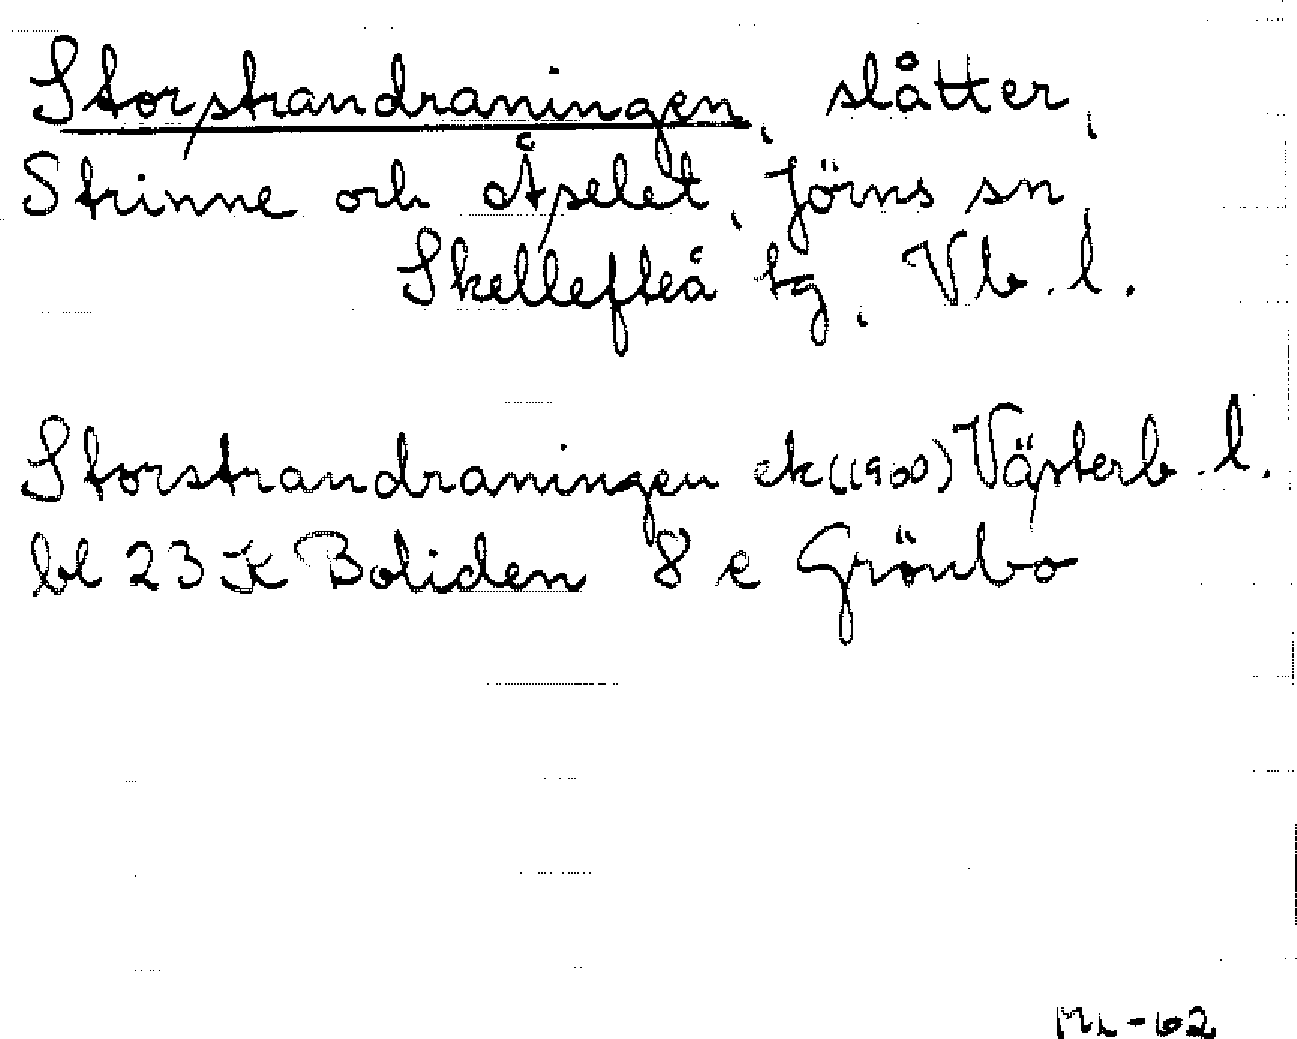 Storstrandraningen, slåtter,
Strinne och Åselet, Jörns sn
Skellefteå tg, Vb. l.
Storstrandraningen ek (1900) Västerb. l.
bl 23 K Boliden 8 e Grönbo
-62